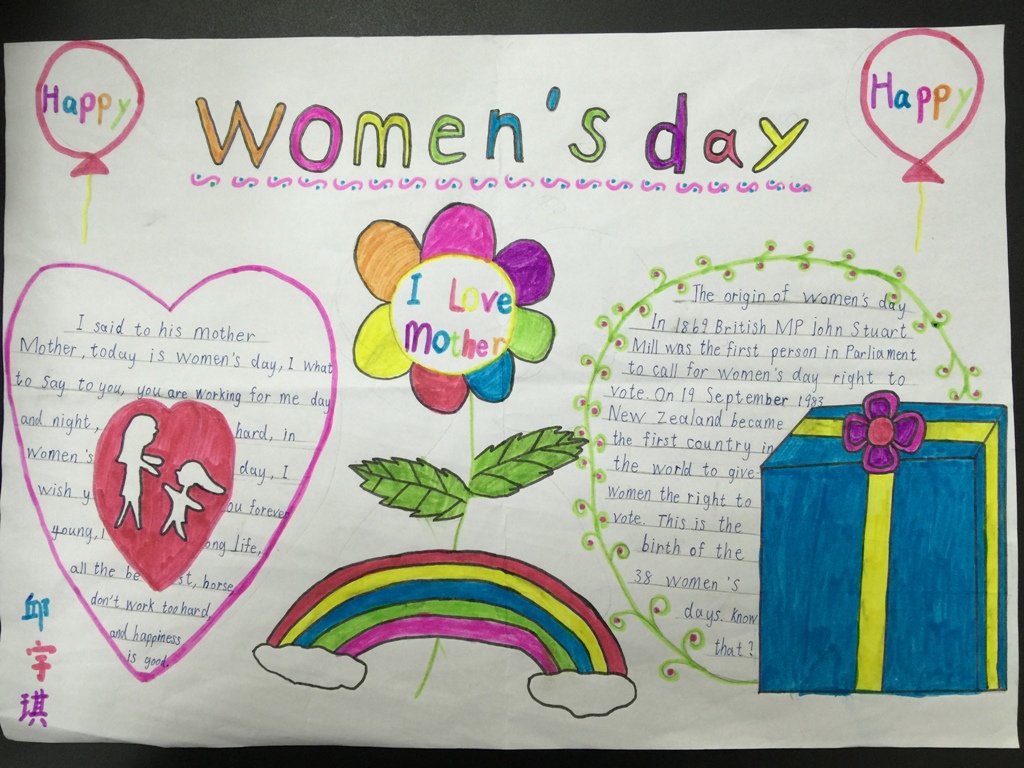 Happy
Women's day
Happy
I said to his mother
Mother, today is women's day, I what
to say to you, you are working for me day
and night, hard, in
women's day, I
wish you forever
young, long life,
all the best, horse,
don't work too hard,
and happiness
is good.
邱宇琪
I Love
Mother
The origin of women's day
In 1869 British MP John Stuart
Mill was the first person in Parliament
to call for women's day right to
vote. On 19 September 1983
New Zealand became
the first country in
the world to give
women the right to
vote. This is the
birth of the
38 women's
days. Know
that?